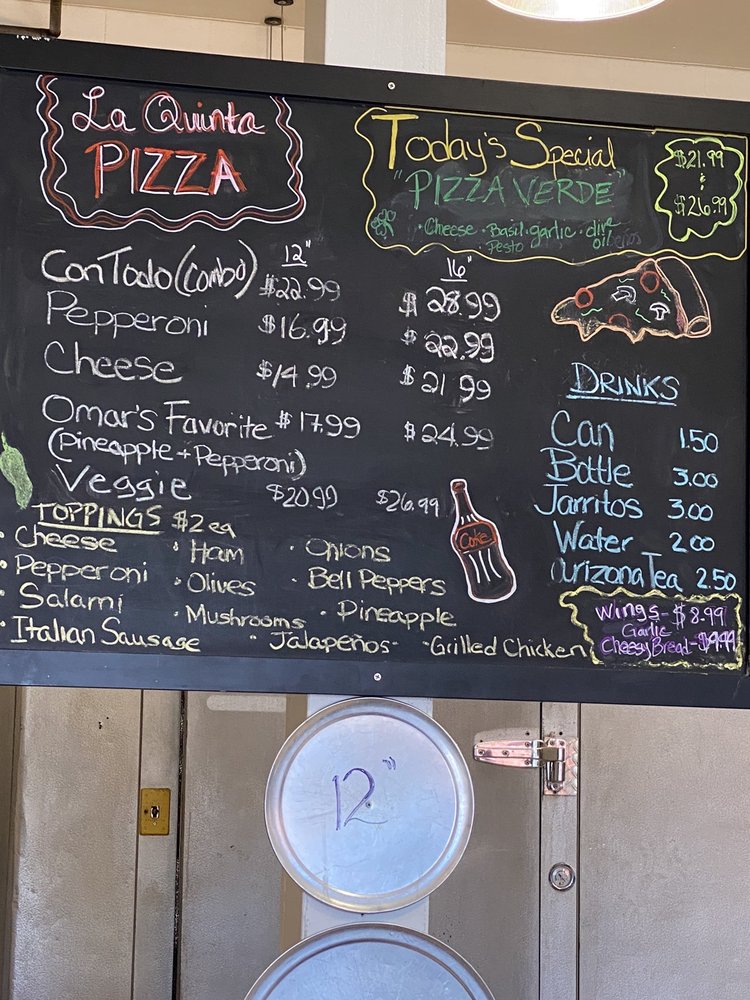 La Quinta
PIZZA
Today's Special
"PIZZA VERDE"
• Cheese • Basil • garlic • olive oil
Pesto
$21.99
&
$26.99
12" 16"
ConTodo (combo) $22.99 $28.99
Pepperoni $16.99 $22.99
Cheese $14.99 $21.99
Omar's Favorite $17.99 $24.99
(Pineapple + Pepperoni)
Veggie $20.99 $26.99
TOPPINGS $2 ea
• Cheese • Ham • Onions
• Pepperoni • Olives • Bell Peppers
• Salami • Mushrooms • Pineapple
• Italian Sausage "Jalapeños" ~Grilled Chicken
Coke
DRINKS
Can 1.50
Bottle 3.00
Jarritos 3.00
Water 2.00
arizona Tea 2.50
Wings - $8.99
Garlic
Cheesy Bread - $9.99
12"